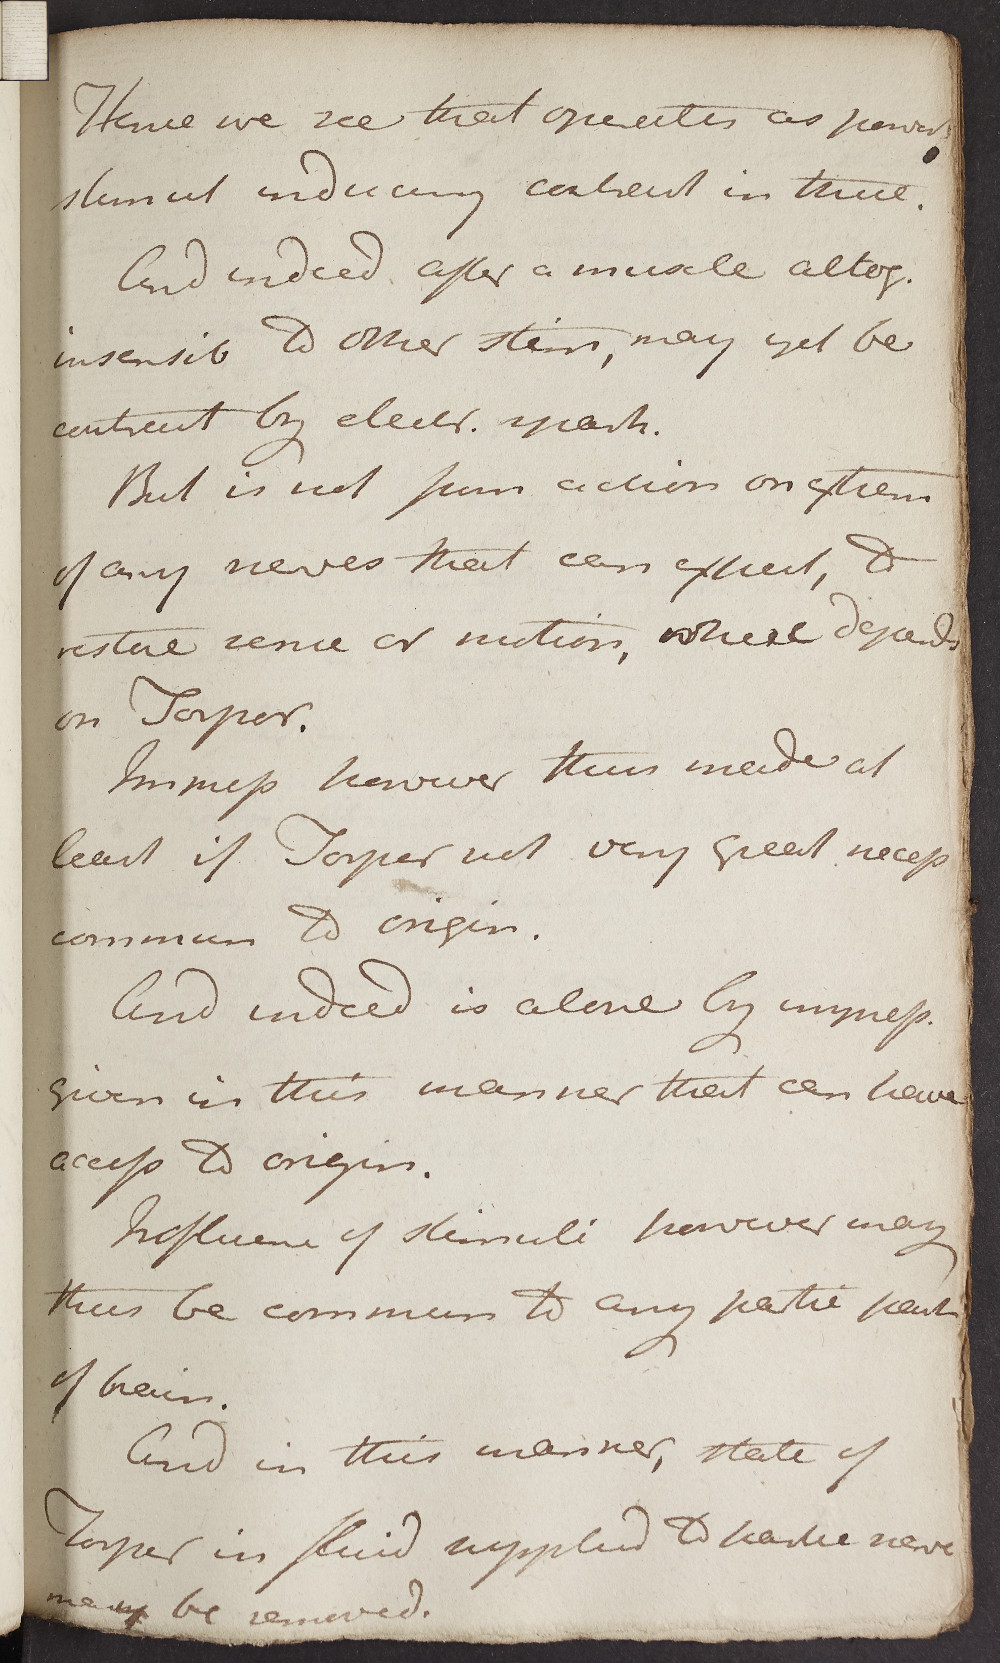 Hence we see that operates as power
stimul inducing contract in these.
And indeed after a muscle altog.
insensib to other stim, may yet be
contract by electr. spark.
But is not from action on extrem
of any nerves that can expect, to
restore sense or motion, where depends
on Torpor.
Impress however thus made at
least if Torpor not very great necess
commun to origin.
And indeed is alone by impress.
given in this manner that can have
access to origin.
Influenc of stimuli however may
thus be commun to any partic part
of brain.
And in this manner, state of
Torpor in fluid supplied to partic nerve
may be removed.